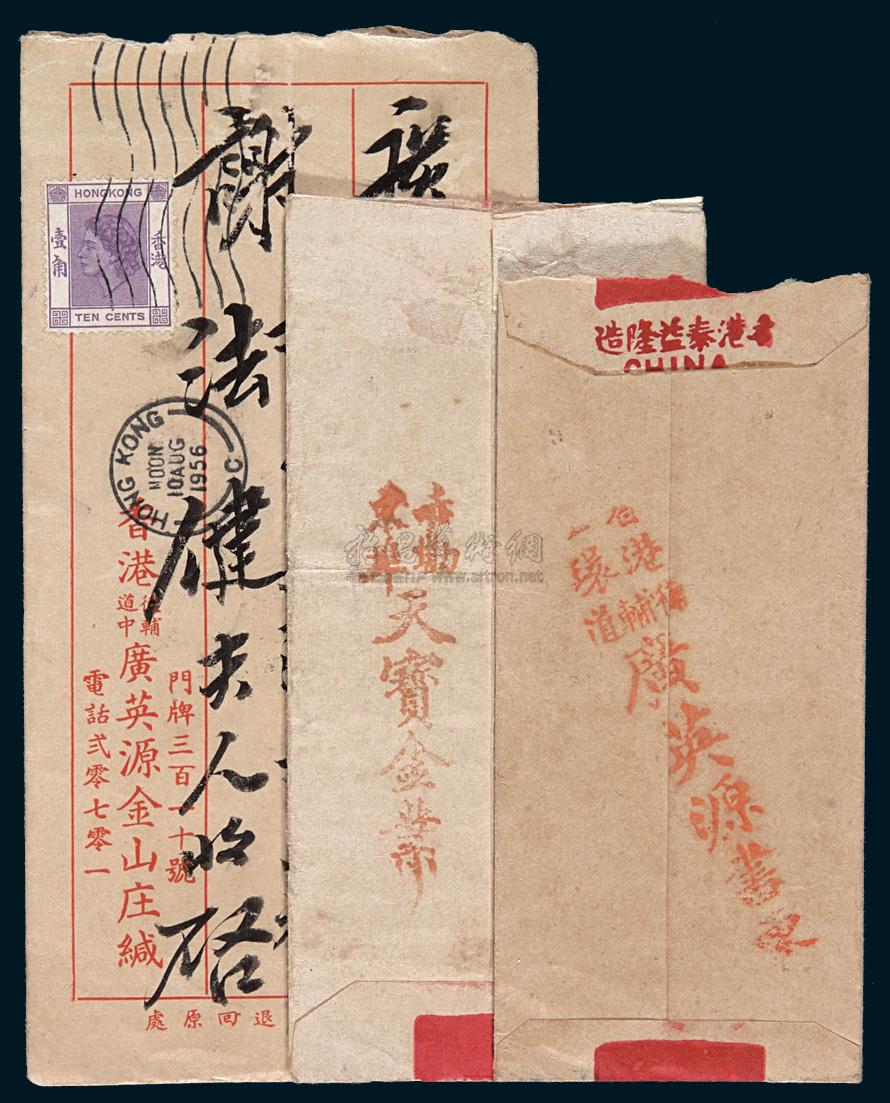 謝法健夫人收啓
HONGKONG
壹角
香港
TEN CENTS
HONG KONG
C
NOON
10AUG
1956
門牌三百一十號
香港德輔道中廣英源金山庄緘
電話弍零七零一
退回原處
天寶金業
造隆益泰港香
CHINA
港
環
德輔道
廣英源書柬
www.artron.net